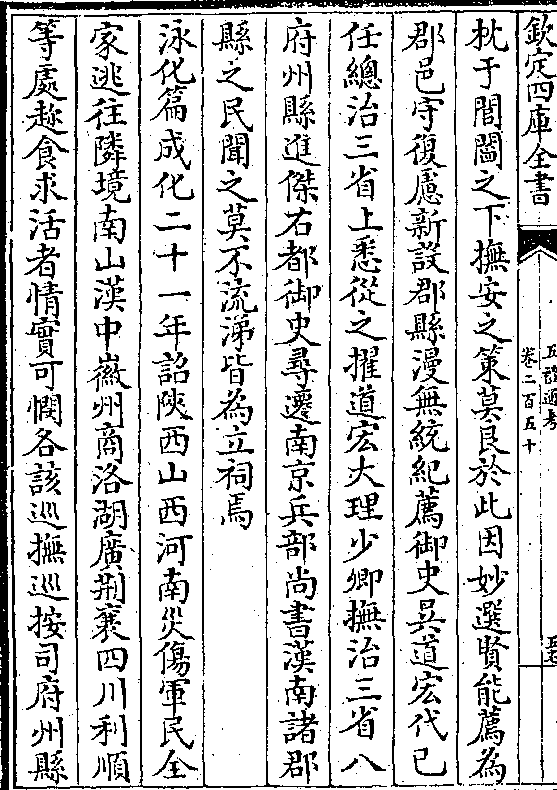 欽定四庫全書
五禮通考
卷二百五十
枕于閭閻之下撫安之策莫良於此因妙選賢能薦為
郡邑守復慮新設郡縣漫無統紀薦御史吳道宏代已
任總治三省上悉從之擢道宏大理少卿撫治三省八
府州縣進傑右都御史尋遷南京兵部尚書漢南諸郡
縣之民聞之莫不流涕皆為立祠焉
泳化篇成化二十一年詔陝西山西河南災傷軍民全
家逃往隣境南山漢中徽州商洛湖廣荆襄四川利順
等處趂食求活者情實可憫各該巡撫巡按司府州縣